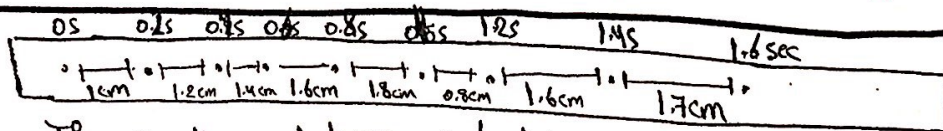 0S 0.2S 0.4S 0.6S 0.8S 1.2S 1.4S 1.6 sec
1cm 1.2cm 1.4cm 1.6cm 1.8cm 0.8cm 1.6cm 1.7cm